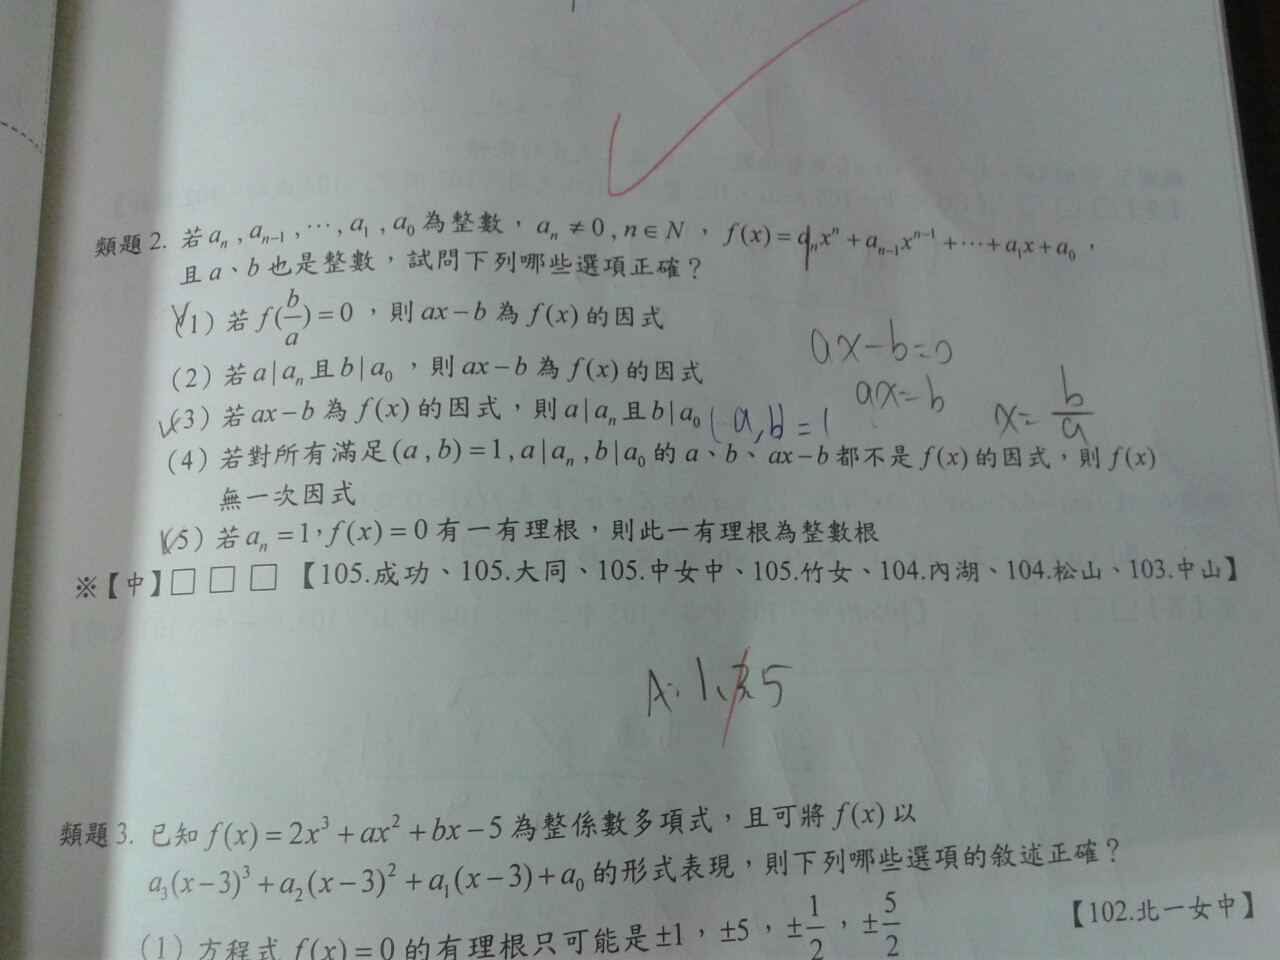 類題2. 若 aₙ , aₙ₋₁ , ⋯ , a₁ , a₀ 為整數，aₙ ≠ 0 , n ∈ N ，f(x) = aₙxⁿ + aₙ₋₁xⁿ⁻¹ + ⋯ + a₁x + a₀ ，
且 a、b 也是整數，試問下列哪些選項正確？
(1) 若 f(b/a) = 0 ，則 ax − b 為 f(x) 的因式
ax−b=0
(2) 若 a | aₙ 且 b | a₀ ，則 ax − b 為 f(x) 的因式
ax=b
x= b/a
(3) 若 ax − b 為 f(x) 的因式，則 a | aₙ 且 b | a₀ (a,b=1
(4) 若對所有滿足 (a , b) = 1 , a | aₙ , b | a₀ 的 a、b、ax − b 都不是 f(x) 的因式，則 f(x)
無一次因式
(5) 若 aₙ = 1，f(x) = 0 有一有理根，則此一有理根為整數根
※【中】□ □ □ 【105.成功、105.大同、105.中女中、105.竹女、104.內湖、104.松山、103.中山】
A: 1、3、5
類題3. 已知 f(x) = 2x³ + ax² + bx − 5 為整係數多項式，且可將 f(x) 以
a₃(x − 3)³ + a₂(x − 3)² + a₁(x − 3) + a₀ 的形式表現，則下列哪些選項的敘述正確？
【102.北一女中】
(1) 方程式 f(x) = 0 的有理根只可能是 ±1，±5，±1/2，±5/2